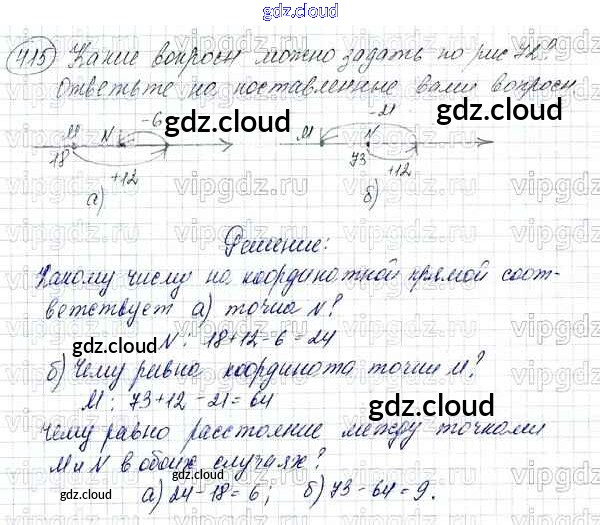 gdz.cloud
415 Какие вопросы можно задать по рис 72?
Ответьте на поставленные вами вопросы
-6 -21
M N M N
18 73
+12 +12
а) б)
gdz.cloud gdz.cloud
Решение:
Какому числу на координатной прямой соот-
ветствует а) точка N?
N: 18+12-6=24
gdz.cloud
б) Чему равна координата точки M?
M: 73+12-21=64
gdz.cloud
Чему равно расстояние между точками
M и N в обоих случаях?
а) 24-18=6; б) 73-64=9.
gdz.cloud gdz.cloud
gdz.cloud